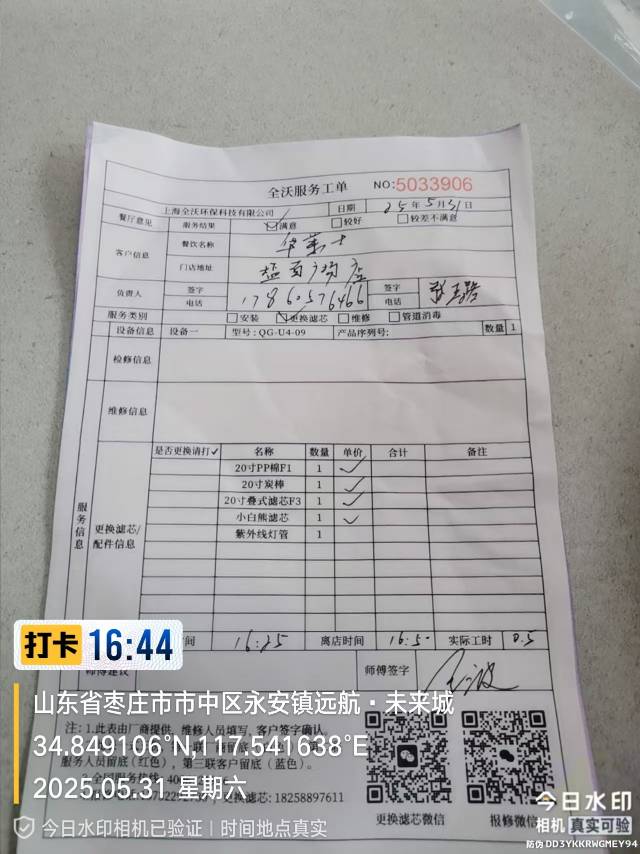 全沃服务工单 NO:5033906
上海全沃环保科技有限公司 日期 25年5月31日
餐厅意见 服务结果 ☑满意 □较好 □较差不满意
客户信息 餐饮名称 华莱士
门店地址 广场店
负责人 签字 签字
电话 17860576466 电话
服务类别 □安装 ☑更换滤芯 □维修 □管道消毒
设备信息 设备一 型号:QG-U4-09 产品序列号: 数量 1
检修信息
维修信息
服务信息
更换滤芯/配件信息
是否更换请打✓ 名称 数量 单价 合计 备注
20寸PP棉F1 1 ✓
20寸炭棒 1 ✓
20寸叠式滤芯F3 1 ✓
小白熊滤芯 1 ✓
紫外线灯管 1
时间 16:25 离店时间 16:5 实际工时 0.5
师傅建议 师傅签字
注: 1.此表由厂商提供, 维修人员填写, 客户签字确认。
服务人员留底(红色), 第三联客户留底(蓝色)。
更换滤芯: 18258897611
更换滤芯微信 报修微信
打卡 16:44
山东省枣庄市市中区永安镇远航·未来城
34.849106°N,117.541638°E
2025.05.31 星期六
今日水印相机已验证 | 时间地点真实
今日水印
相机 真实可验
防伪 DD3YKKRWGMEY94